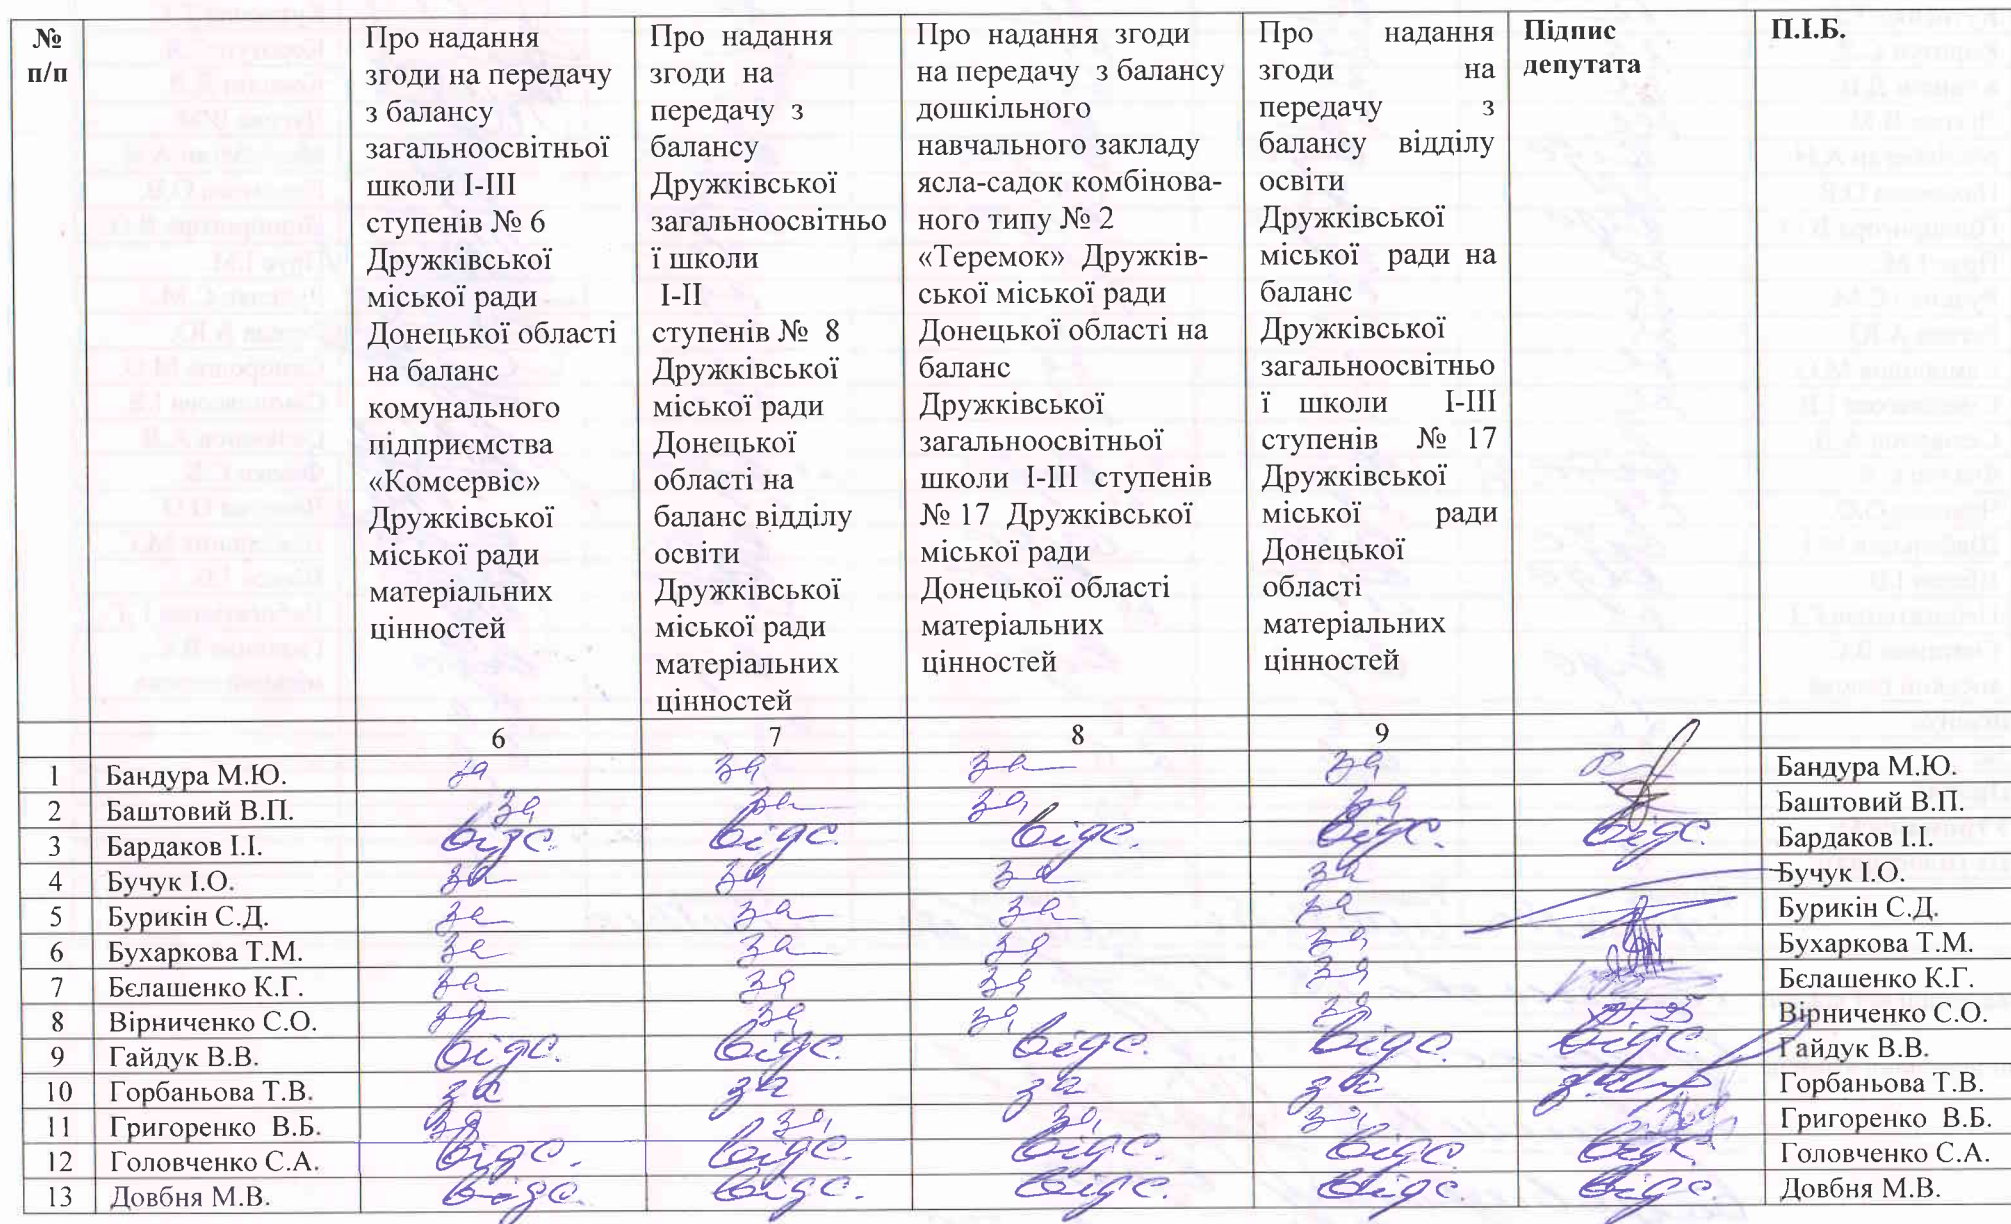 №
п/п
Про надання
згоди на передачу
з балансу
загальноосвітньої
школи І-ІІІ
ступенів № 6
Дружківської
міської ради
Донецької області
на баланс
комунального
підприємства
«Комсервіс»
Дружківської
міської ради
матеріальних
цінностей
Про надання
згоди на
передачу з
балансу
Дружківської
загальноосвітньо
ї школи
І-ІІ
ступенів № 8
Дружківської
міської ради
Донецької
області на
баланс відділу
освіти
Дружківської
міської ради
матеріальних
цінностей
Про надання згоди
на передачу з балансу
дошкільного
навчального закладу
ясла-садок комбінова-
ного типу № 2
«Теремок» Дружків-
ської міської ради
Донецької області на
баланс
Дружківської
загальноосвітньої
школи І-ІІІ ступенів
№ 17 Дружківської
міської ради
Донецької області
матеріальних
цінностей
Про надання
згоди на
передачу з
балансу відділу
освіти
Дружківської
міської ради на
баланс
Дружківської
загальноосвітньо
ї школи І-ІІІ
ступенів № 17
Дружківської
міської ради
Донецької
області
матеріальних
цінностей
Підпис
депутата
П.І.Б.
6 7 8 9
1 Бандура М.Ю. за за за за Бандура М.Ю.
2 Баштовий В.П. за за за за Баштовий В.П.
3 Бардаков І.І. відс. відс. відс. відс. відс. Бардаков І.І.
4 Бучук І.О. за за за за Бучук І.О.
5 Бурикін С.Д. за за за за Бурикін С.Д.
6 Бухаркова Т.М. за за за за Бухаркова Т.М.
7 Бєлашенко К.Г. за за за за Бєлашенко К.Г.
8 Вірниченко С.О. за за за за Вірниченко С.О.
9 Гайдук В.В. відс. відс. відс. відс. відс. Гайдук В.В.
10 Горбаньова Т.В. за за за за Горбаньова Т.В.
11 Григоренко В.Б. за за за за Григоренко В.Б.
12 Головченко С.А. відс. відс. відс. відс. відс. Головченко С.А.
13 Довбня М.В. відс. відс. відс. відс. відс. Довбня М.В.